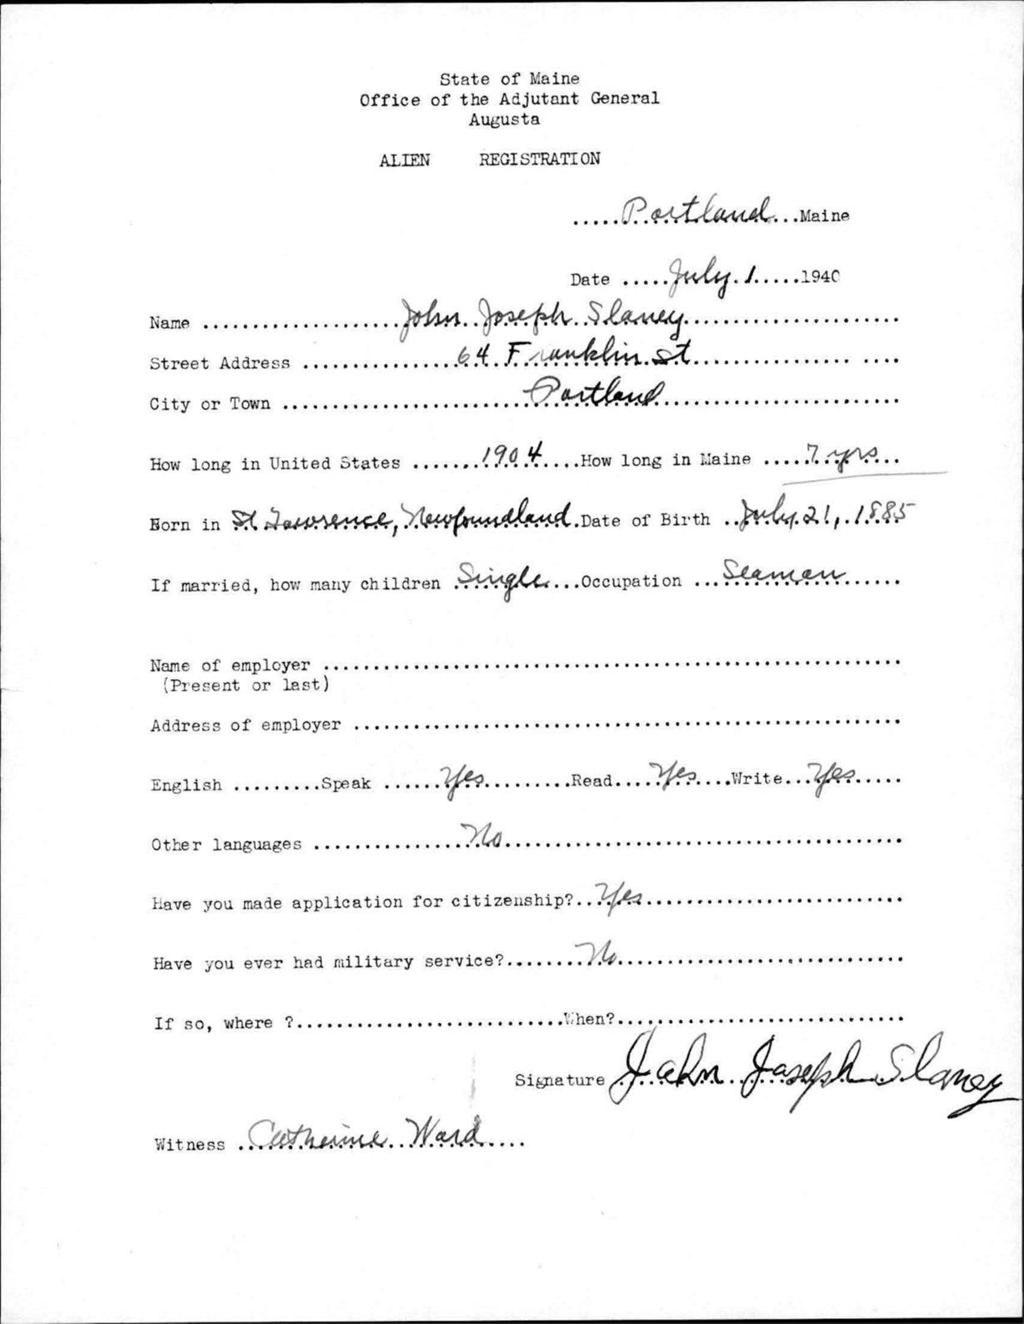 State of Maine
Office of the Adjutant General
Augusta
ALIEN REGISTRATION
.....Portland...Maine
Date .....July 1.....1940
Name ....................John Joseph Slaney......................
Street Address ................64 Franklin St................ ....
City or Town .........................Portland........................
How long in United States .......1904....How long in Maine .....7 yrs...
Born in St Lawrence, Newfoundland.Date of Birth ..July 21, 1885
If married, how many children .Single...Occupation ...Seaman......
Name of employer ..........................................................
(Present or last)
Address of employer .......................................................
English .........Speak ......Yes.........Read.....Yes....Write...Yes.....
Other languages ................No........................................
Have you made application for citizenship?...Yes..........................
Have you ever had military service?........No.............................
If so, where ?...........................When?.............................
Signature John Joseph Slaney
Witness ..Catherine Ward.....